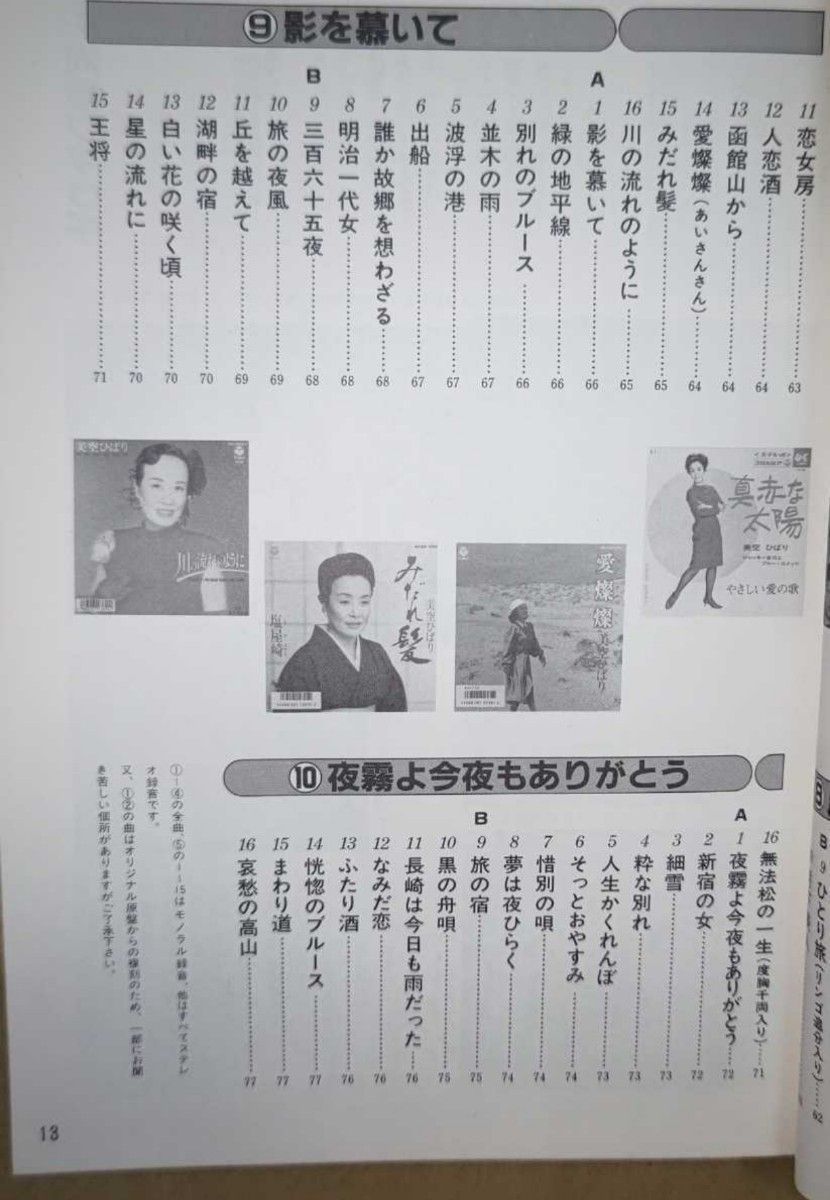 11 恋女房 63
12 人恋酒 64
13 函館山から 64
14 愛燦燦(あいさんさん) 64
15 みだれ髪 65
16 川の流れのように 65
⑨影を慕いて
A
1 影を慕いて 66
2 緑の地平線 66
3 別れのブルース 66
4 並木の雨 67
5 波浮の港 67
6 出船 67
7 誰か故郷を想わざる 68
8 明治一代女 68
B
9 三百六十五夜 68
10 旅の夜風 69
11 丘を越えて 69
12 湖畔の宿 70
13 白い花の咲く頃 70
14 星の流れに 70
15 王将 71
真赤な
太陽
美空ひばり
やさしい愛の歌
愛燦燦
美空ひばり
みだれ髪
美空ひばり
塩屋崎
美空ひばり
川の流れのように
16 無法松の一生(度胸千両入り) 71
⑩夜霧よ今夜もありがとう
A
1 夜霧よ今夜もありがとう 72
2 新宿の女 72
3 細雪 73
4 粋な別れ 73
5 人生かくれんぼ 73
6 そっとおやすみ 74
7 惜別の唄 74
8 夢は夜ひらく 74
B
9 旅の宿 75
10 黒の舟唄 75
11 長崎は今日も雨だった 76
12 なみだ恋 76
13 ふたり酒 76
14 恍惚のブルース 77
15 まわり道 77
16 哀愁の高山 77
①―④の全曲、⑤の1―15はモノラル録音、他はすべてステレ
オ録音です。
又、①②の曲はオリジナル原盤からの複刻のため、一部にお聞
き苦しい個所がありますがご了承下さい。
13
B
9 ひとり旅(リンゴ追分入り) 62